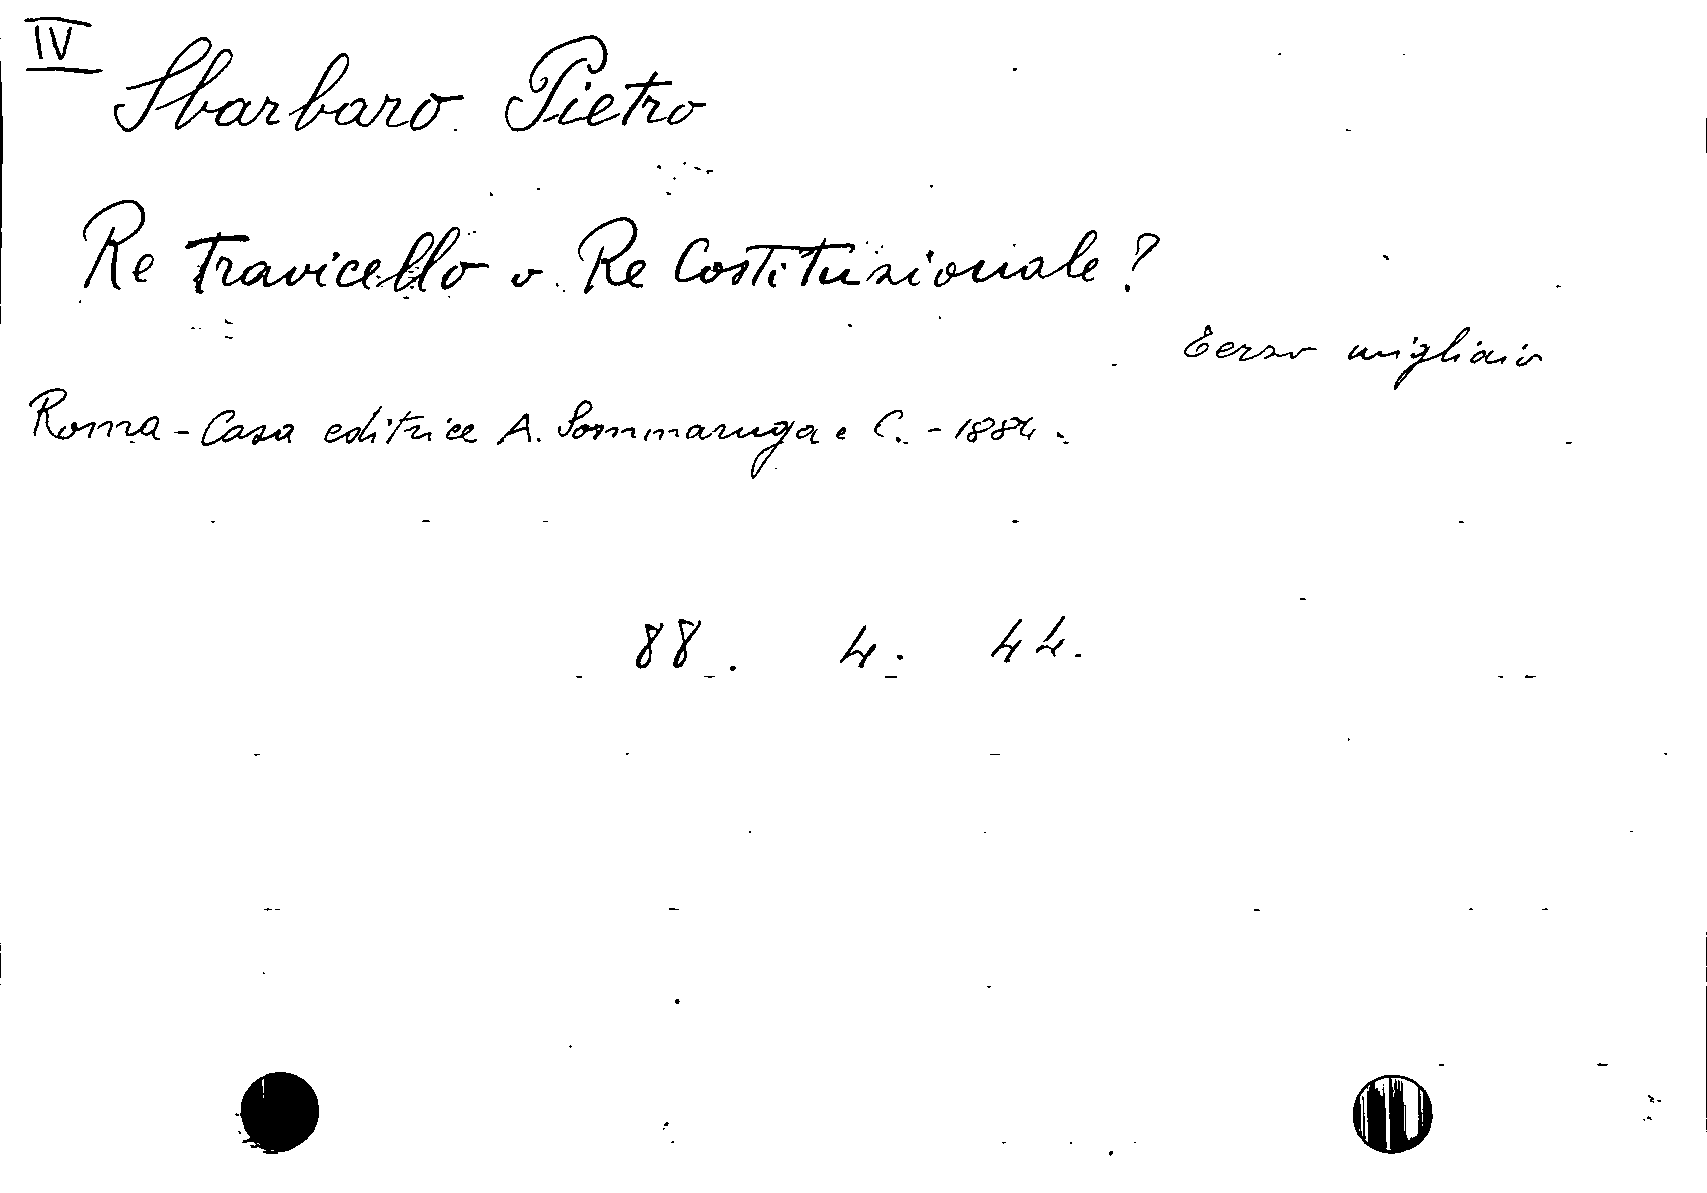 IV
Sbarbaro Pietro
Re Travicello o Re Costituzionale?
Terzo migliaio
Roma - Casa editrice A. Sommaruga e C. - 1884.
88. 4. 44.